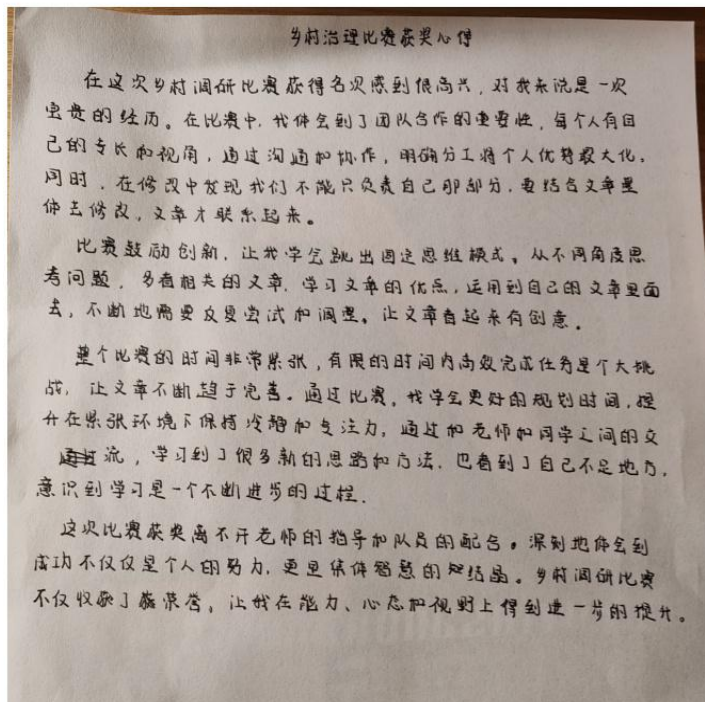 乡村治理比赛获奖心得
在这次乡村调研比赛获得名次感到很高兴，对我来说是一次
宝贵的经历。在比赛中，我体会到了团队合作的重要性，每个人有自
己的专长和视角，通过沟通和协作，明确分工将个人优势最大化。
同时，在修改中发现我们不能只负责自己那部分，要结合文章整
体去修改，文章才联系起来。
比赛鼓励创新，让我学会跳出固定思维模式。从不同角度思
考问题，多看相关的文章，学习文章的优点，运用到自己的文章里面
去，不断地需要反复尝试和调整。让文章看起来有创意。
整个比赛的时间非常紧张，有限的时间内高效完成任务是个大挑
战，让文章不断趋于完善。通过比赛，我学会更好的规划时间，提
升在紧张环境下保持冷静和专注力，通过和老师和同学之间的交
流，学习到了很多新的思路和方法，也看到了自己不足地方，
意识到学习是一个不断进步的过程.
这次比赛获奖离不开老师的指导和队员的配合。深刻地体会到
成功不仅仅是个人的努力，更是集体智慧的结晶。乡村调研比赛
不仅收获了荣誉，让我在能力、心态和视野上得到进一步的提升。